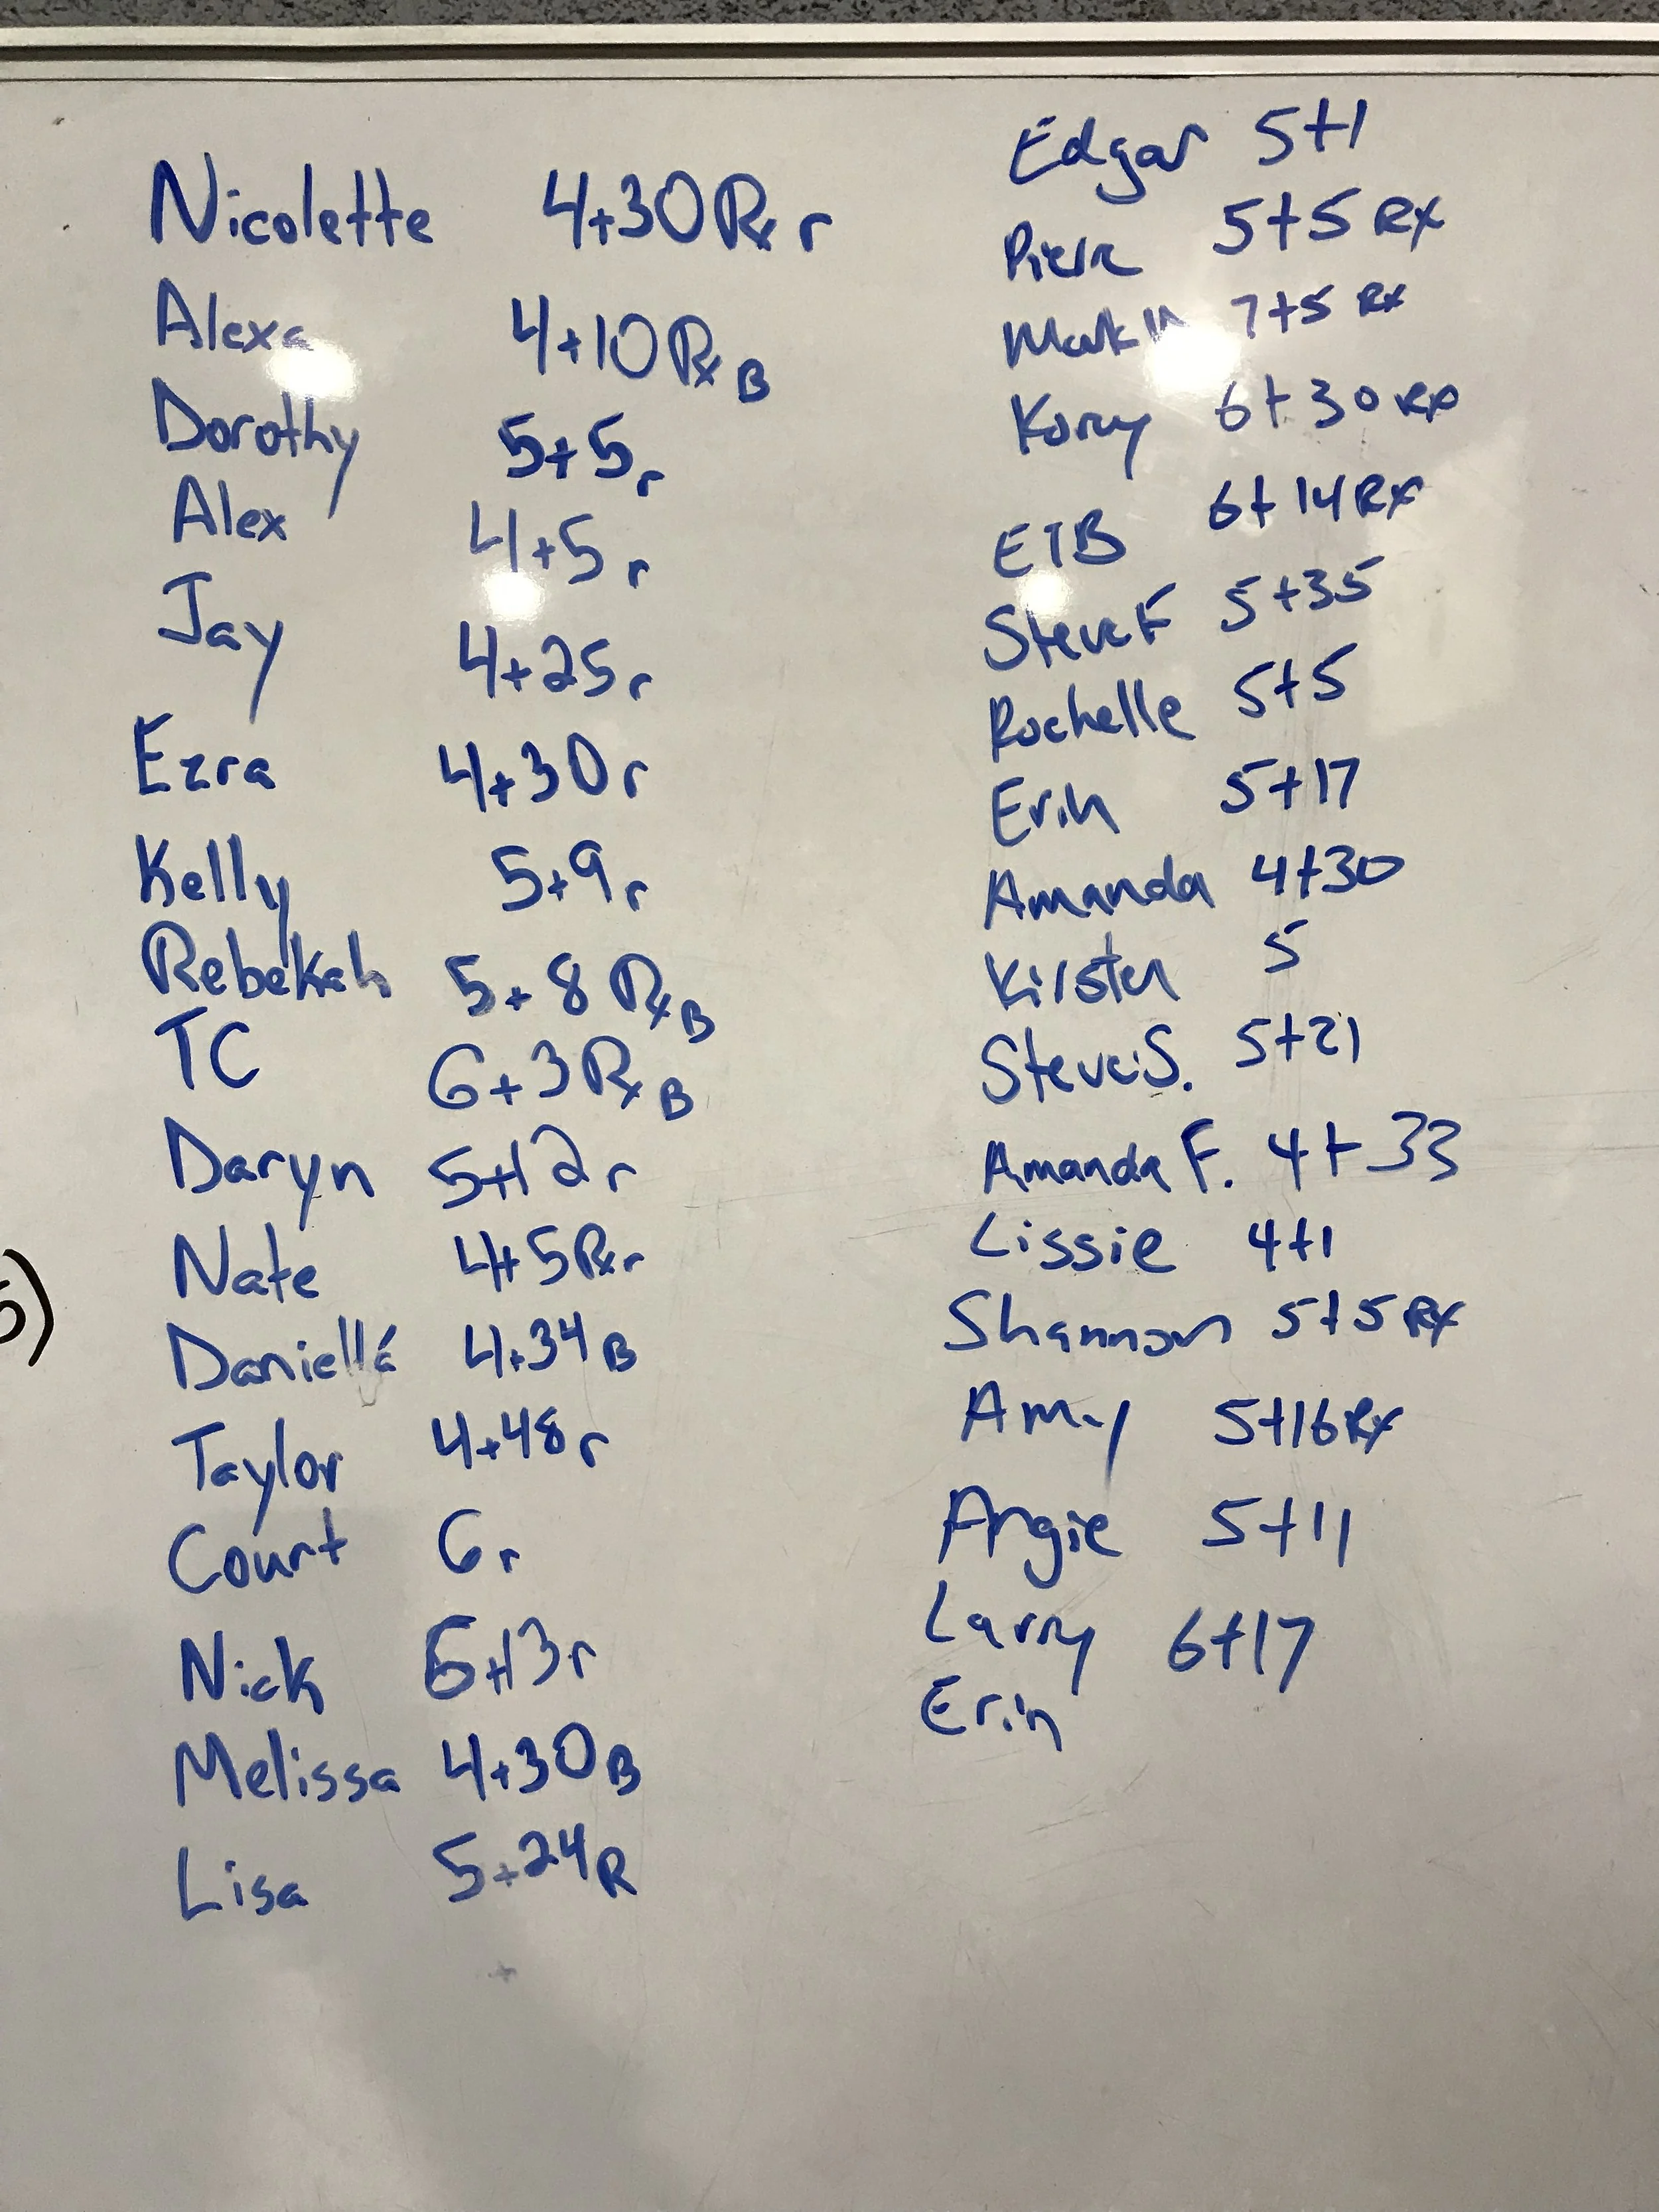 Nicolette 4+30 Rx r
Alexa 4+10 Rx B
Dorothy 5+5 r
Alex 4+5 r
Jay 4+25 r
Ezra 4+30 r
Kelly 5+9 r
Rebekah 5+8 Rx B
TC 6+3 Rx B
Daryn 5+12 r
Nate 4+5 Rx r
Danielle 4+34 B
Taylor 4+48 r
Court 6 r
Nick 13 r
Melissa 4+30 B
Lisa 5+24 R
5)
Edgar 5+1
Pierre 5+5 RX
Mark 7+5 RX
Kory 6+30 RX
ETB 6+14 RX
Steve F 5+35
Rochelle 5+5
Erin 5+17
Amanda 4+30
Kirsten 5
Steve S. 5+21
Amanda F. 4+33
Lissie 4+1
Shannon 5+5 RX
Amy 5+16 RX
Angie 5+11
Larry 6+17
Erin